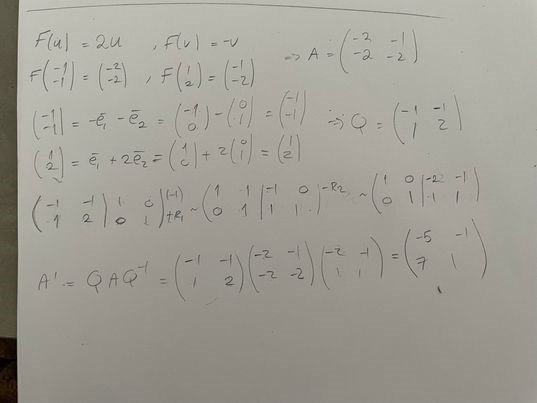 F(u) = 2u , F(v) = -v => A = (-2 -1
-2 -2)
F(-1
-1) = (-2
-2) , F(1
2) = (-1
-2)
(-1
-1) = -e̅₁ - e̅₂ = (-1
0) - (0
1) = (-1
-1) => Q = (-1 -1
1 2)
(1
2) = e̅₁ + 2e̅₂ = (1
0) + 2(0
1) = (1
2)
(-1 -1 | 1 0
1 2 | 0 1) (-1) +R₁ ~ (1 1 | -1 0
0 1 | 1 1) -R2 ~ (1 0 | -2 -1
0 1 | 1 1)
A' = QAQ⁻¹ = (-1 -1
1 2)(-2 -1
-2 -2)(-2 -1
1 1) = (-5 -1
7 1)